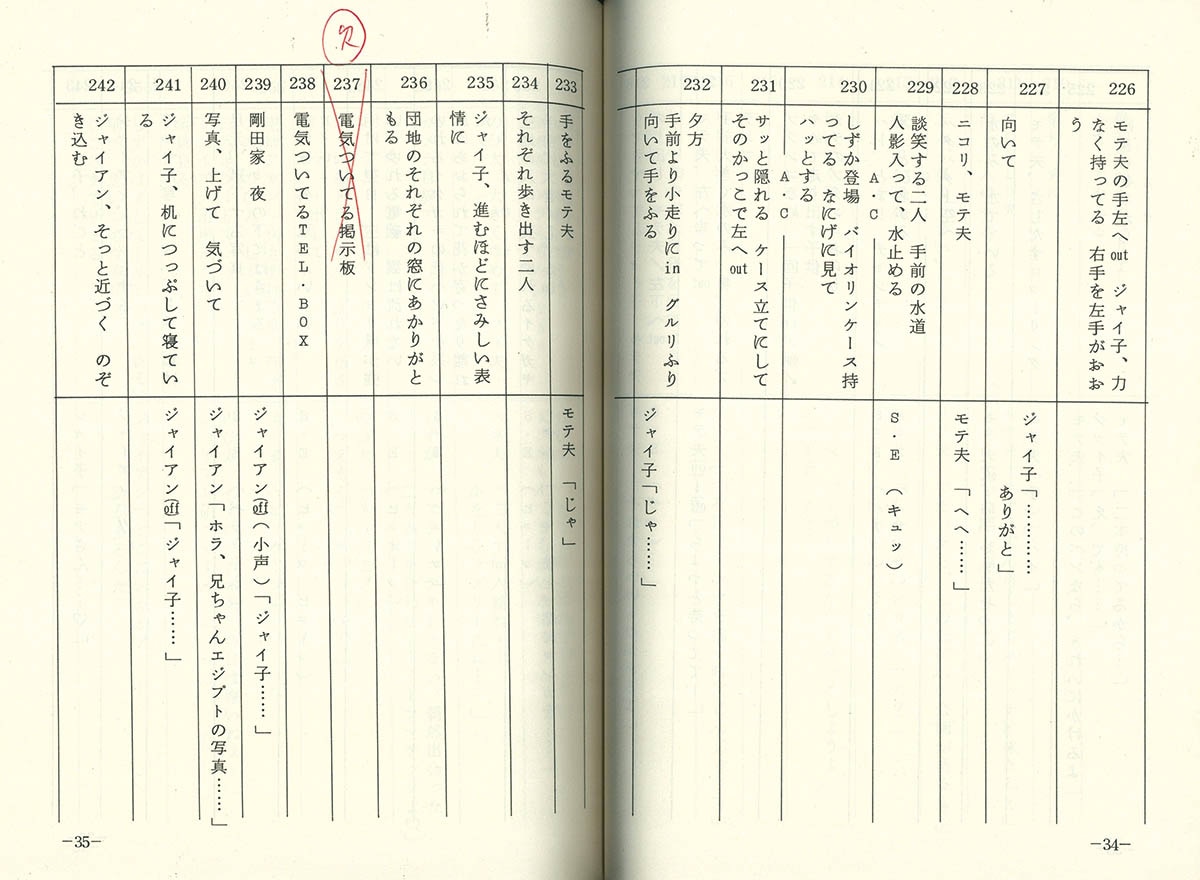 226
モテ夫の手左へout・ジャイ子、力
なく持ってる 右手を左手がおお
う
227
向いて
ジャイ子「…………
ありがと」
228
ニコリ、モテ夫
モテ夫 「へへ……」
229
談笑する二人 手前の水道
人影入って、水止める
S・E (キュッ)
A・C
230
しずか登場 バイオリンケース持
ってる なにげに見て
ハッとする
A・C
231
サッと隠れる ケース立てにして
そのかっこで左へout
232
夕方
手前より小走りにin グルリふり
向いて手をふる
ジャイ子「じゃ……」
-34-
233
手をふるモテ夫
モテ夫 「じゃ」
234
それぞれ歩き出す二人
235
ジャイ子、進むほどにさみしい表
情に
236
団地のそれぞれの窓にあかりがと
もる
欠
237
電気ついてる掲示板
238
電気ついてるTEL・BOX
239
剛田家 夜
ジャイアン(off)(小声)「ジャイ子……」
240
写真、上げて 気づいて
ジャイアン「ホラ、兄ちゃんエジプトの写真……」
241
ジャイ子、机につっぷして寝てい
る
ジャイアン(off)「ジャイ子……」
242
ジャイアン、そっと近づく のぞ
き込む
-35-